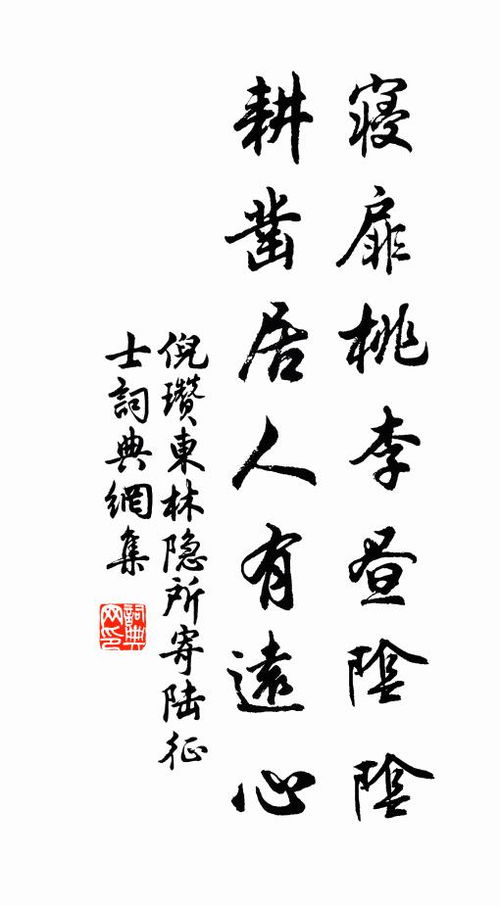 寢扉桃李昼陰陰
耕凿居人有遠心
倪瓚東林隐所寄陆征
士詞典網集
詞典网印